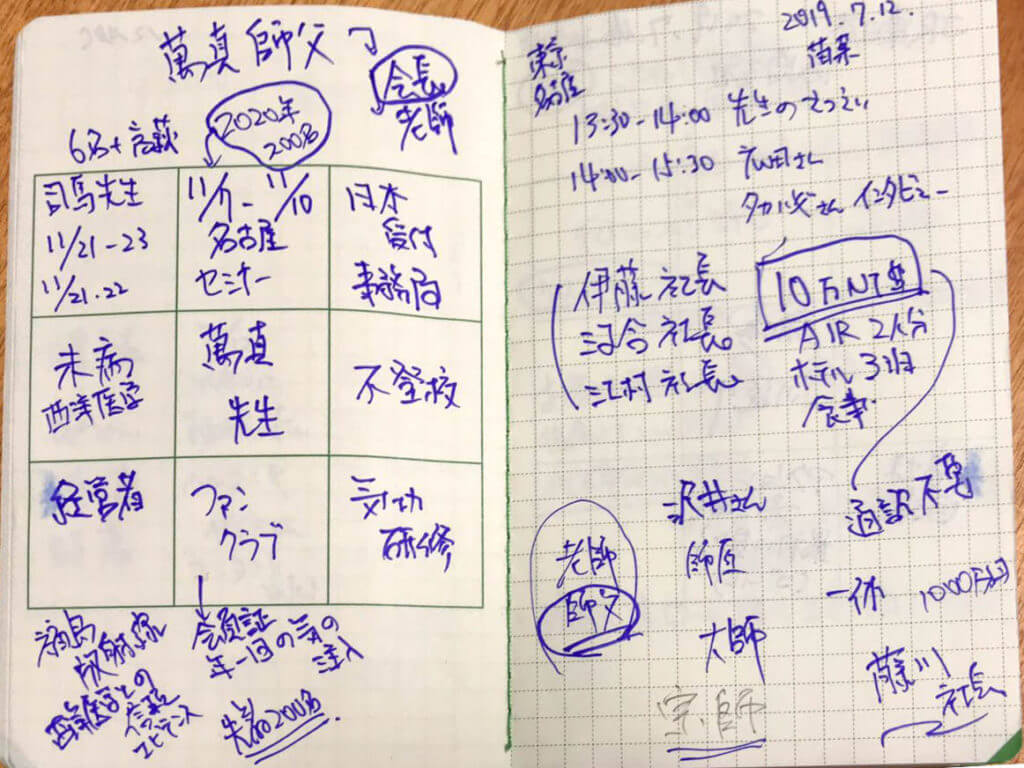 萬真師父
会長
老師
2020年
200名
6名+高萩
司馬先生
11/21-23
11/21.22
11/1-11/10
名古屋
セミナー
日本
受付
事務局
未病
西洋医学
萬真
先生
不登校
経営者
ファン
クラブ
気功
研修
放射線
西洋医学との
エビデンス
会員証
年一回の気の
注入
先着200名
2019.7.12.
苗栗
東京
名古屋
13:30-14:00 先生のさつえい
14:00-15:30
さん インタビュー
伊藤社長
河合社長
江村社長
10万NT$
AIR 2人分
ホテル 3泊
食事
通訳不要
沢井さん
老師
師父
師匠
大師
宗師
一休 1000万円
藤川
社長